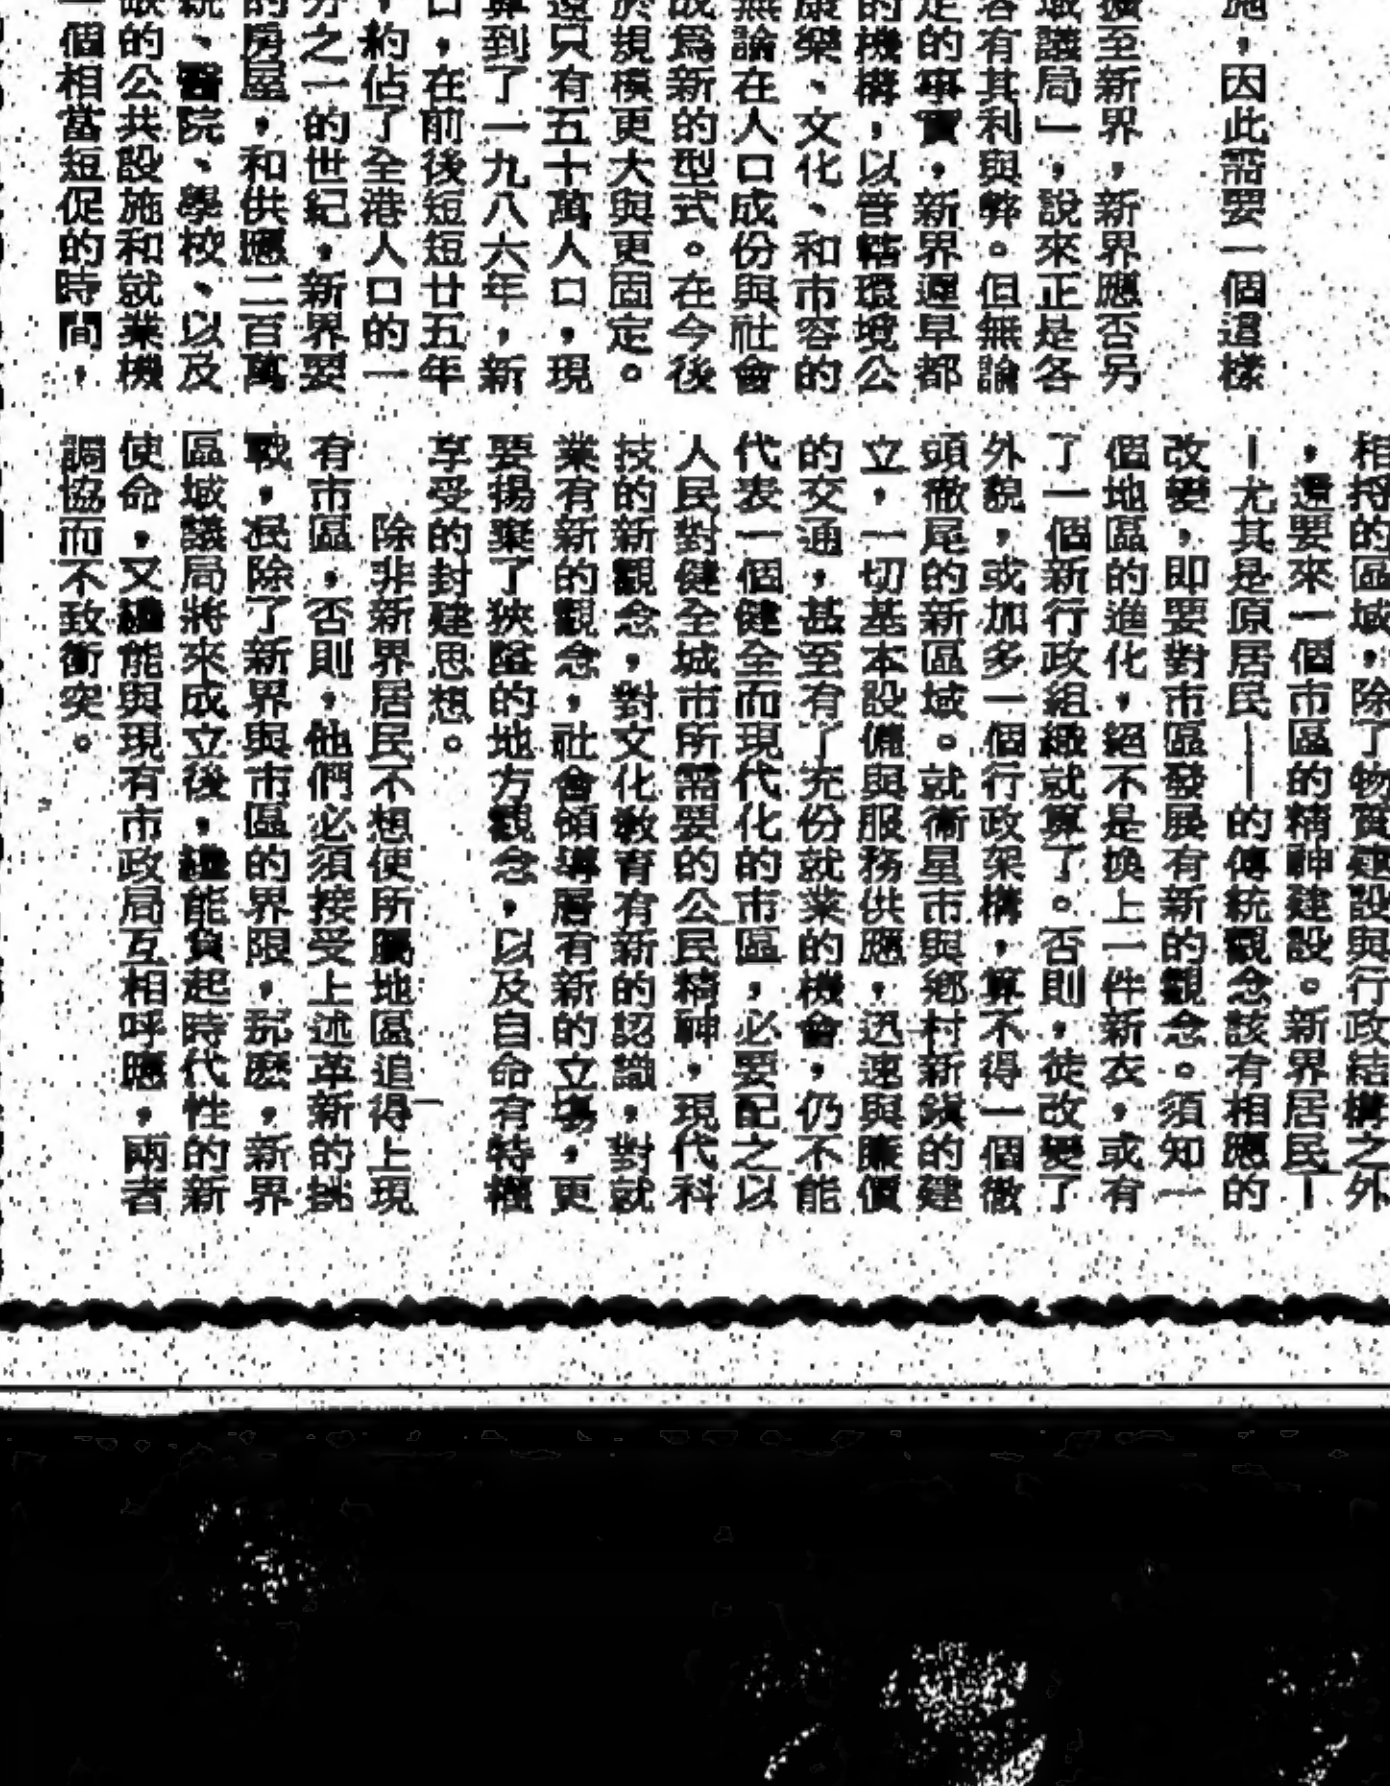 施，因此需要一個這樣
擴至新界，新界應否另
域議局」，說來正是各
各有其利與弊。但無論
定的事實，新界遲早都
的機構，以管轄環境公
康樂、文化、和市容的
無論在人口成份與社會
成爲新的型式。在今後
於規模更大與更固定。
還只有五十萬人口，現
算到了一九八六年，新
口，在前後短短廿五年
，約佔了全港人口的一
分之一的世紀，新界要
的房屋，和供應二百萬
統、醫院、學校、以及
的公共設施和就業機
一個相當短促的時間，
相捋的區域，除了物質建設與行政結構之外
，還要來一個市區的精神建設。新界居民—
—尤其是原居民——的傳統觀念該有相應的
改變，即要對市區發展有新的觀念。須知一
個地區的進化，絕不是換上一件新衣，或有
了一個新行政組織就算了。否則，徒改變了
外貌，或加多一個行政架構，算不得一個徹
頭徹尾的新區域。就衛星市與鄉村新鎮的建
立，一切基本設備與服務供應，迅速與廉價
的交通，甚至有了充份就業的機會，仍不能
代表一個健全而現代化的市區，必要配之以
人民對健全城市所需要的公民精神，現代科
技的新觀念，對文化教育有新的認識，對就
業有新的觀念，社會領導層有新的立場，更
要揚棄了狹隘的地方觀念，以及自命有特權
享受的封建思想。
除非新界居民不想使所屬地區追得上現
有市區，否則，他們必須接受上述革新的挑
戰，泯除了新界與市區的界限，那麽，新界
區域議局將來成立後，纔能負起時代性的新
使命，又纔能與現有市政局互相呼應，兩者
調協而不致衝突。